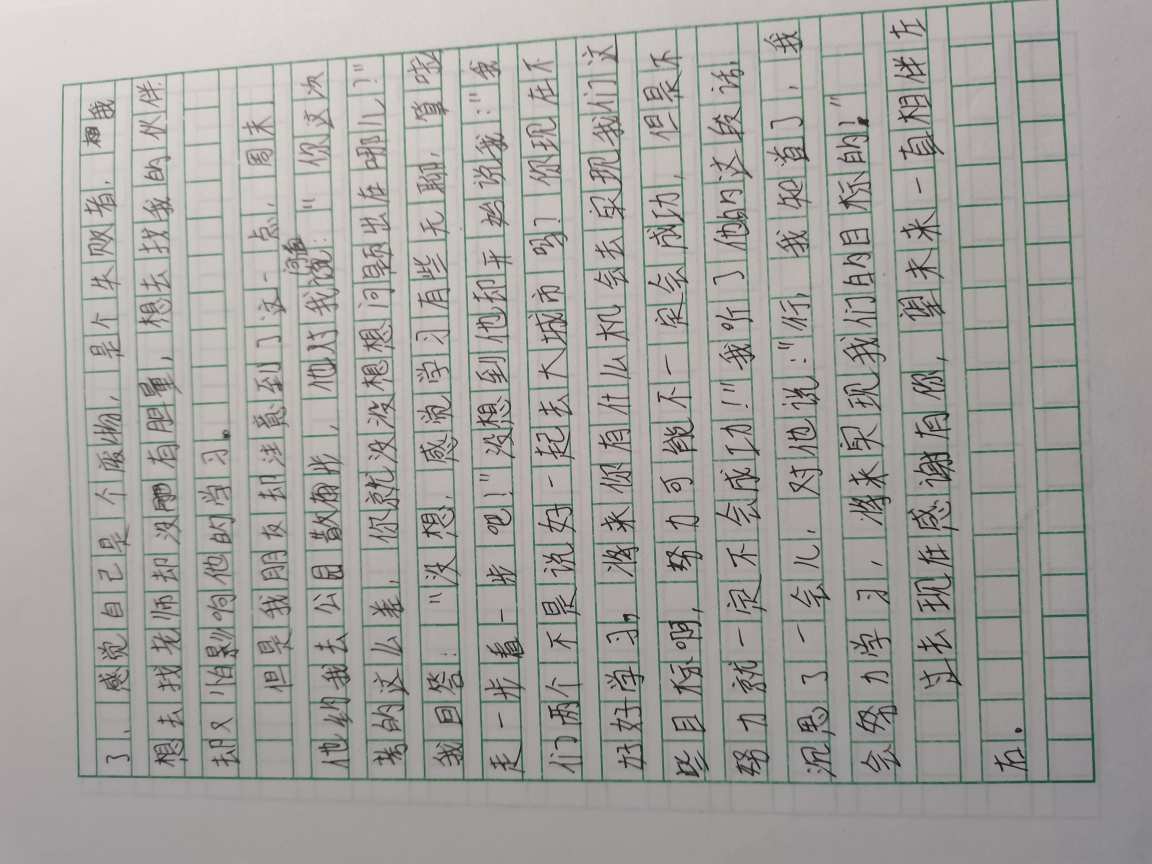 了，感觉自己是个废物，是个失败者，想我
想去找老师却没有胆量，想去找我的伙伴
却又怕影响他的学习。
但是我朋友却注意到了这一点，周末
他约我去公园散步，他对我说：“你这次
考的这么差，你就没没想想问题出在哪儿！”
我回答：“没想，感觉学习有些无聊，算啦
走一步看一步吧！”没想到他却开始说我：“我
们两个不是说好一起去大城市吗？你现在不
好好学习，将来你有什么机会去实现我们这
些目标啊，努力可能不一定会成功，但是不
努力就一定不会成功！”我听了他的这段话，
沉思了一会儿，对他说：“行，我知道了，我
会努力学习，将来实现我们的目标的！”
过去现在感谢有你，望未来一直相伴左
右。